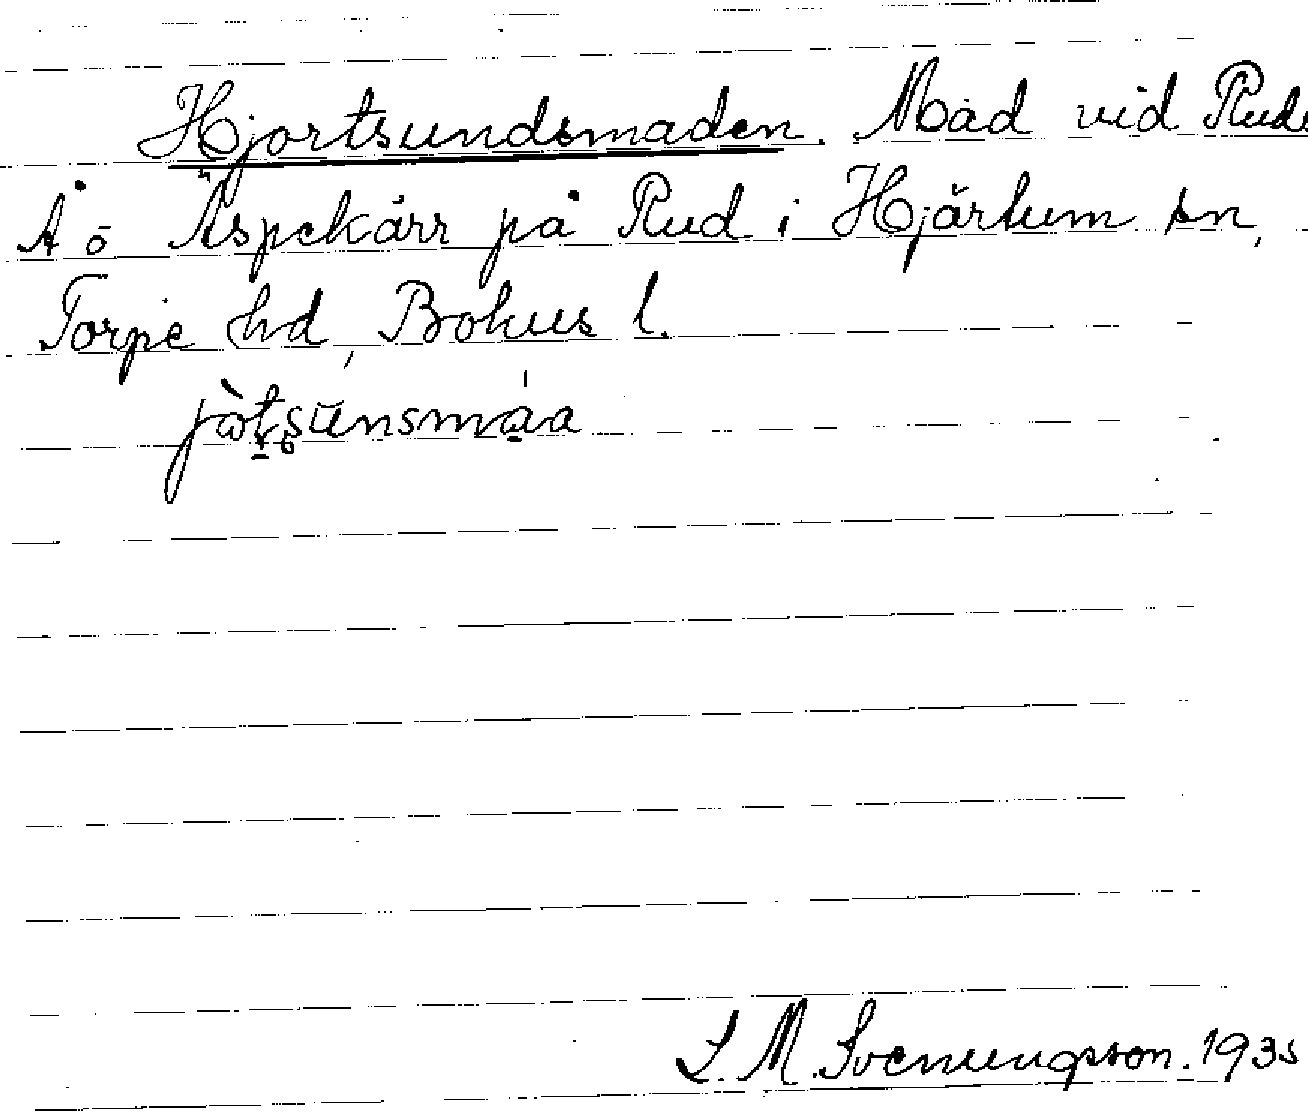 Hjortsundsmaden. Mad vid Rude
Å ö Äspekärr på Rud i Hjärtum sn,
Torpe hd, Bohus l.
L. M. Svenungsson. 1935